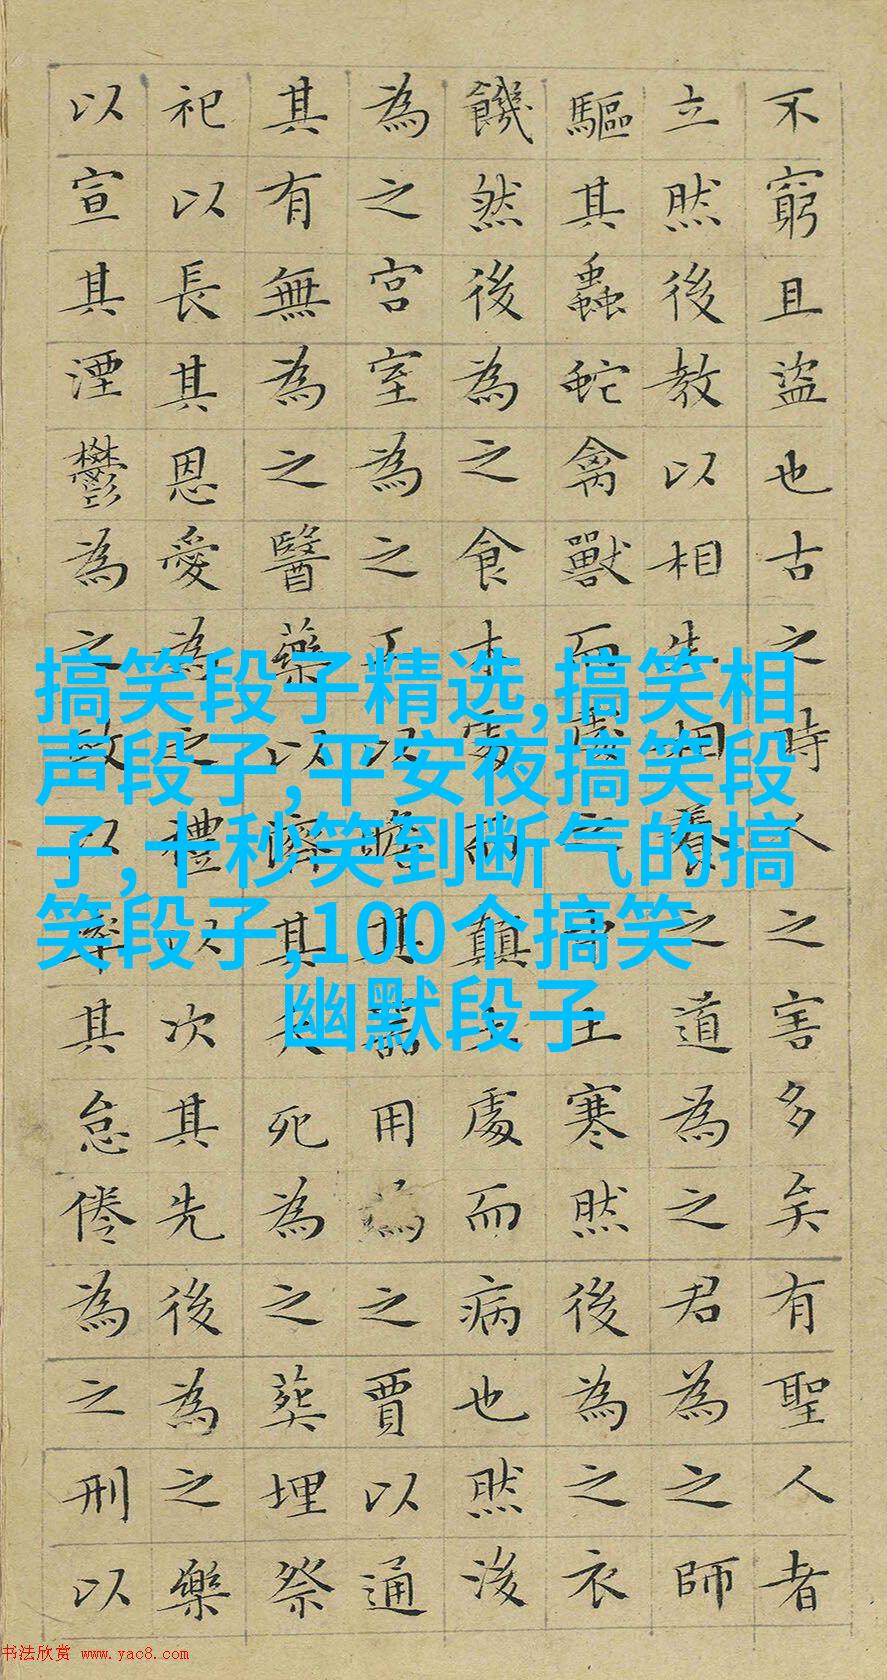 不窮且盜也古之時人之害多矣有聖人者
立然後教以相生相養之道為之君為之師
驅其蟲蛇禽獸而處之中土寒然後為之衣
饑然後為之食木處而顛土處而病也然後
為之宮室為之工以贍其器用為之賈以通
其有無為之醫藥以濟其夭死為之葬埋祭
祀以長其恩愛為之禮以次其先後為之樂
以宣其湮鬱為之政以率其怠倦為之刑以
搞笑段子精选,搞笑相
声段子,平安夜搞笑段
子,十秒笑到断气的搞
笑段子,100个搞笑
幽默段子
书法欣赏 www.yac8.com